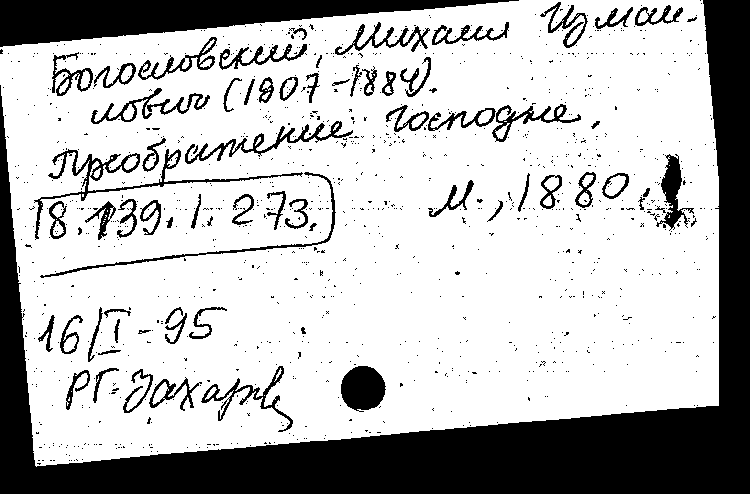 Богословский, Михаил Измаи-
лович (1807-1884).
Преображение Господне.
М., 1880.
18.139.1.273.
16/I-95
РГ-Захарв